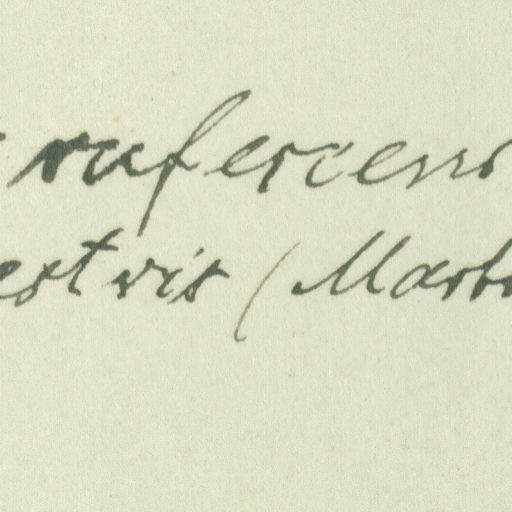 rufescens
estris (Marb